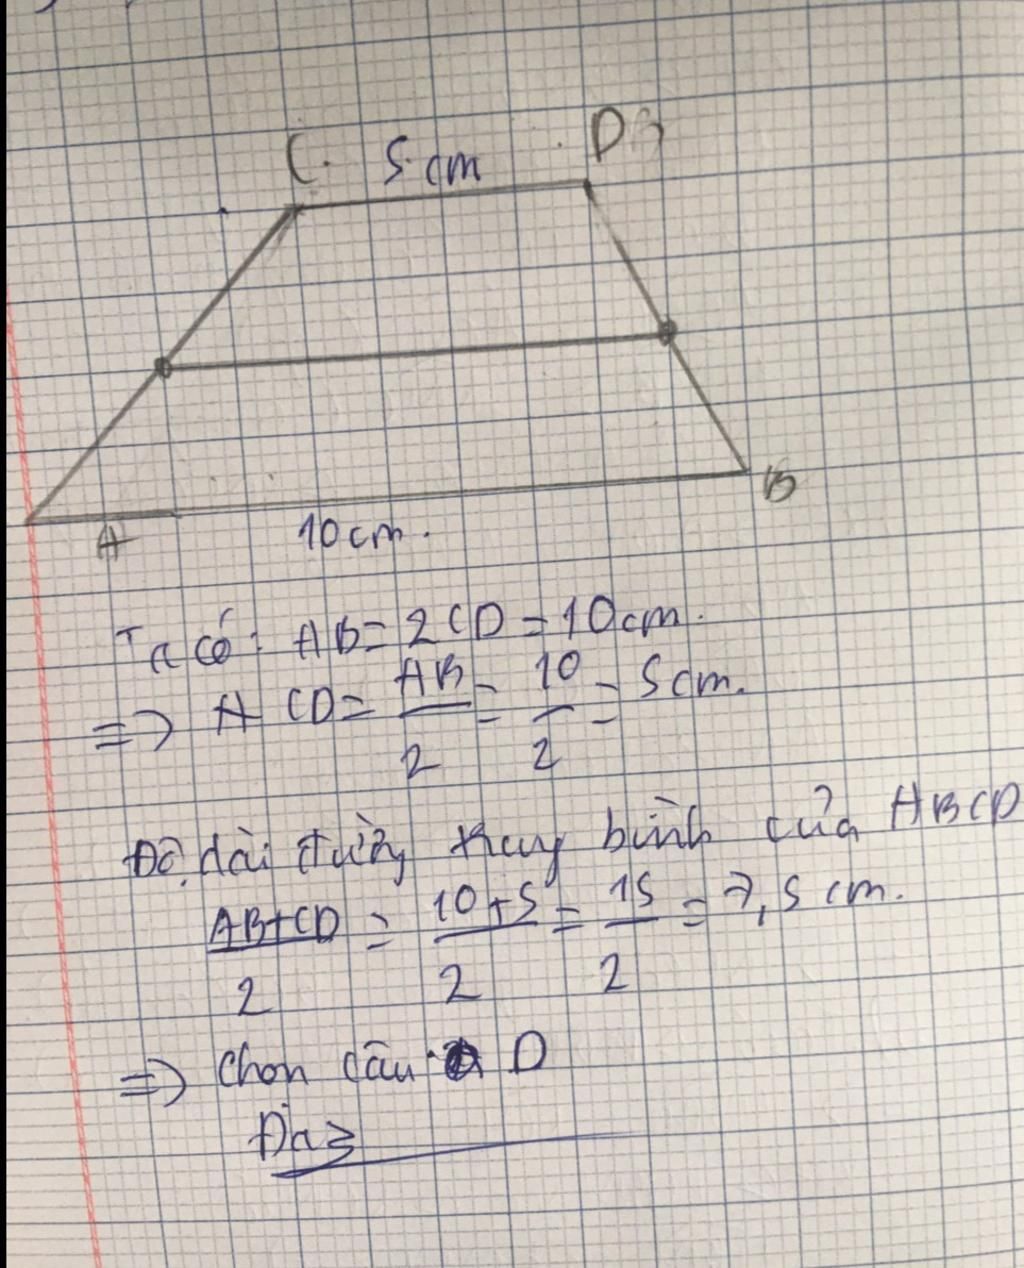 C. 5 cm D
B
A 10 cm.
Ta có: AB = 2CD = 10 cm.
=> A CD = AB/2 = 10/2 = 5 cm.
Độ dài đường trung bình của ABCD
AB+CD/2 = 10+5/2 = 15/2 = 7,5 cm.
=> Chọn câu D